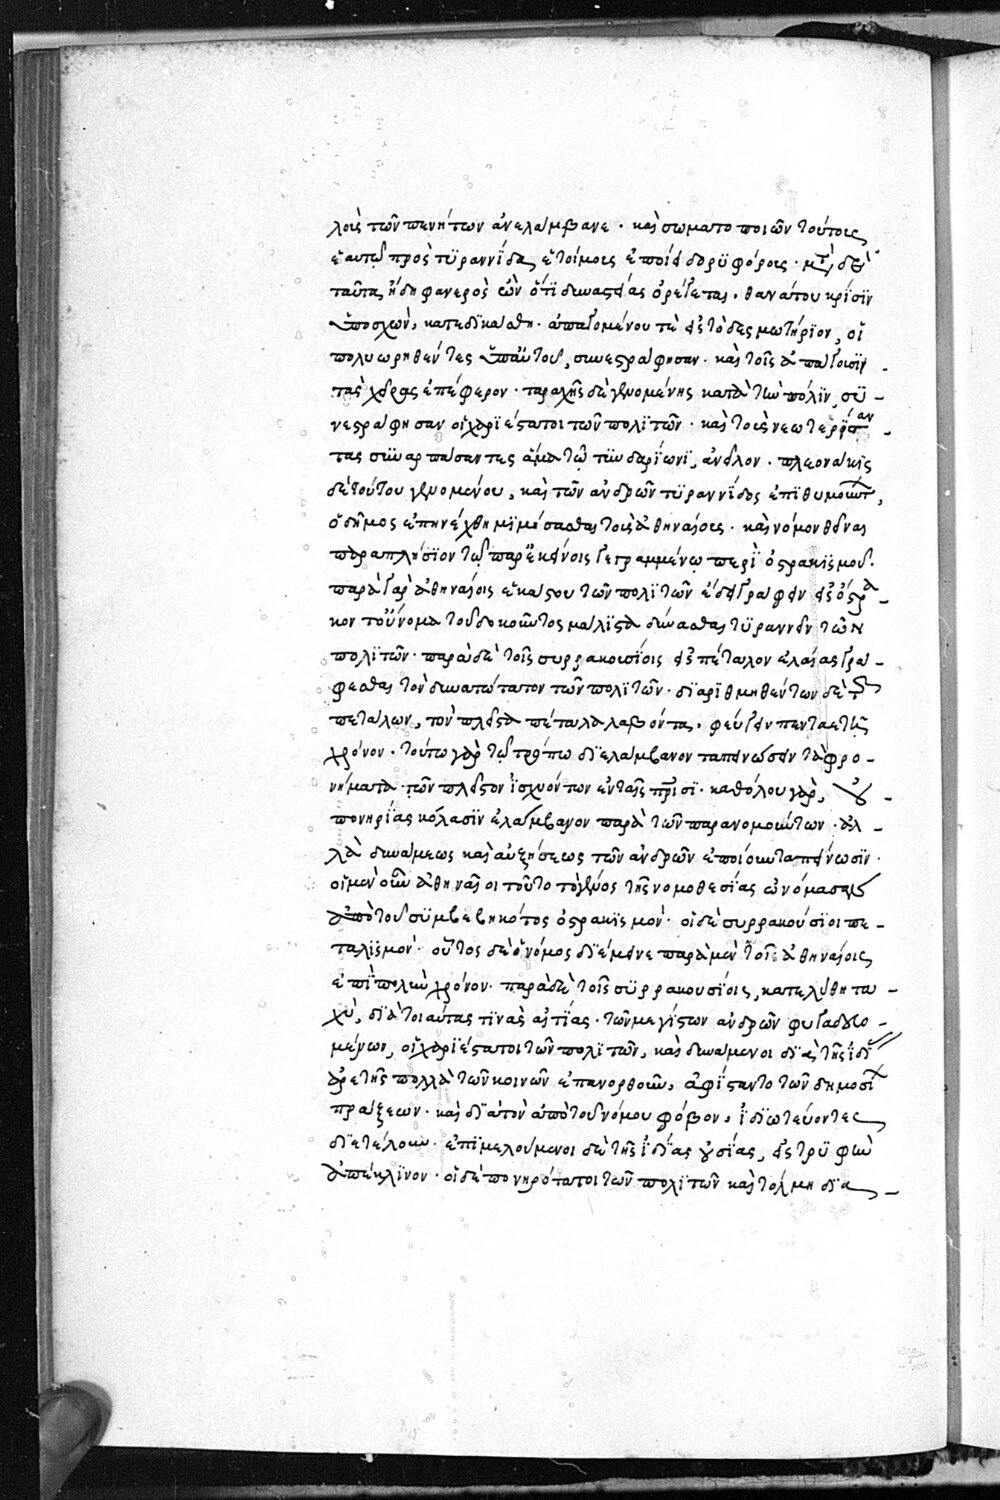 λοὺς τῶν πενήτων ἀνελάμβανε· καὶ σωματοποιῶν τούτους
ἑαυτῷ πρὸς τυραννίδα, ἑτοίμους ἐποίει δορυφόρους· μετὰ δὲ
ταῦτα ἤδη φανερὸς ὢν ὅτι δυναστείας ὀρέγεται, θανάτου κρίσιν
ὑποσχὼν, κατεδικάσθη· ἀπαγομένου τὲ εἰς τὸ δεσμωτήριον, οἱ
πολυωρηθέντες ὑπ' αὐτοῦ, συνεστράφησαν· καὶ τοῖς ἀπάγουσιν
τὰς χεῖρας ἐπέφερον· ταραχῆς δὲ γενομένης κατὰ τὴν πόλιν, συ-
νεστράφησαν οἱ χαριέστατοι τῶν πολιτῶν· καὶ τοὺς νεωτερίσαν-
τας συναρπάσαντες ἅμα τῷ τυνδαρίωνι, ἀνεῖλον· πλεονάκις
δὲ τούτου γενομένου, καὶ τῶν ἀνδρῶν τυραννίδος ἐπιθυμούντων,
ὁ δῆμος ἐπηνέχθη μιμήσασθαι τοὺς ἀθηναίους· καὶ νόμον θεῖναι
παραπλήσιον τῷ παρ' ἐκείνοις γεγραμμένῳ περὶ ὀστρακισμοῦ·
παρὰ γὰρ ἀθηναίοις ἕκαστον τῶν πολιτῶν ἔδει γράφειν εἰς ὄστρα-
κον τοὔνομα τοῦ δοκοῦντος μάλιστα δύνασθαι τυραννεῖν τῶν
πολιτῶν· παρὰ δὲ τοῖς συρρακουσίοις εἰς πέταλον ἐλαίας γρά-
φεσθαι τὸν δυνατώτατον τῶν πολιτῶν· διαριθμηθέντων δὲ τῶν
πετάλων, τὸν πλεῖστα πέταλα λαβόντα, φεύγειν πενταετῆ
χρόνον· τούτω γὰρ τῷ τρόπω διελάμβανον ταπεινώσειν τὰ φρο-
νήματα τῶν πλεῖστον ἰσχυόντων ἐν ταῖς πατρίσι· καθόλου γὰρ, οὐ -
πονηρίας κόλασιν ἐλάμβανον παρὰ τῶν παρανομούντων· ἀλ-
λὰ δυνάμεως καὶ αὐξήσεως τῶν ἀνδρῶν ἐποίουν ταπείνωσιν·
οἱ μὲν οὖν ἀθηναῖοι τοῦτο τὸ γένος τῆς νομοθεσίας ὠνόμασαν
ἀπὸ τοῦ συμβεβηκότος ὀστρακισμὸν· οἱ δὲ συρρακούσιοι πε-
ταλισμὸν· οὗτος δὲ ὁ νόμος διέμεινε παρὰ μὲν τοῖς ἀθηναίοις
ἐπὶ πολὺν χρόνον· παρὰ δὲ τοῖς συρρακουσίοις, κατελύθη τα-
χὺ, διὰ τοιαύτας τινὰς αἰτίας· τῶν μεγίστων ἀνδρῶν φυγαδευο-
μένων, οἱ χαριέστατοι τῶν πολιτῶν, καὶ δυνάμενοι διὰ τῆς ἰδίας
ἀρετῆς πολλὰ τῶν κοινῶν ἐπανορθοῦν, ἀφίσταντο τῶν δημοσίων
πράξεων· καὶ διὰ τὸν ἀπὸ τοῦ νόμου φόβον, ἰδιωτεύοντες
διετέλουν· ἐπιμελούμενοι δὲ τῆς ἰδίας οὐσίας, εἰς τρυφὴν
ἀπέκλινον· οἱ δὲ πονηρότατοι τῶν πολιτῶν καὶ τόλμη δια-